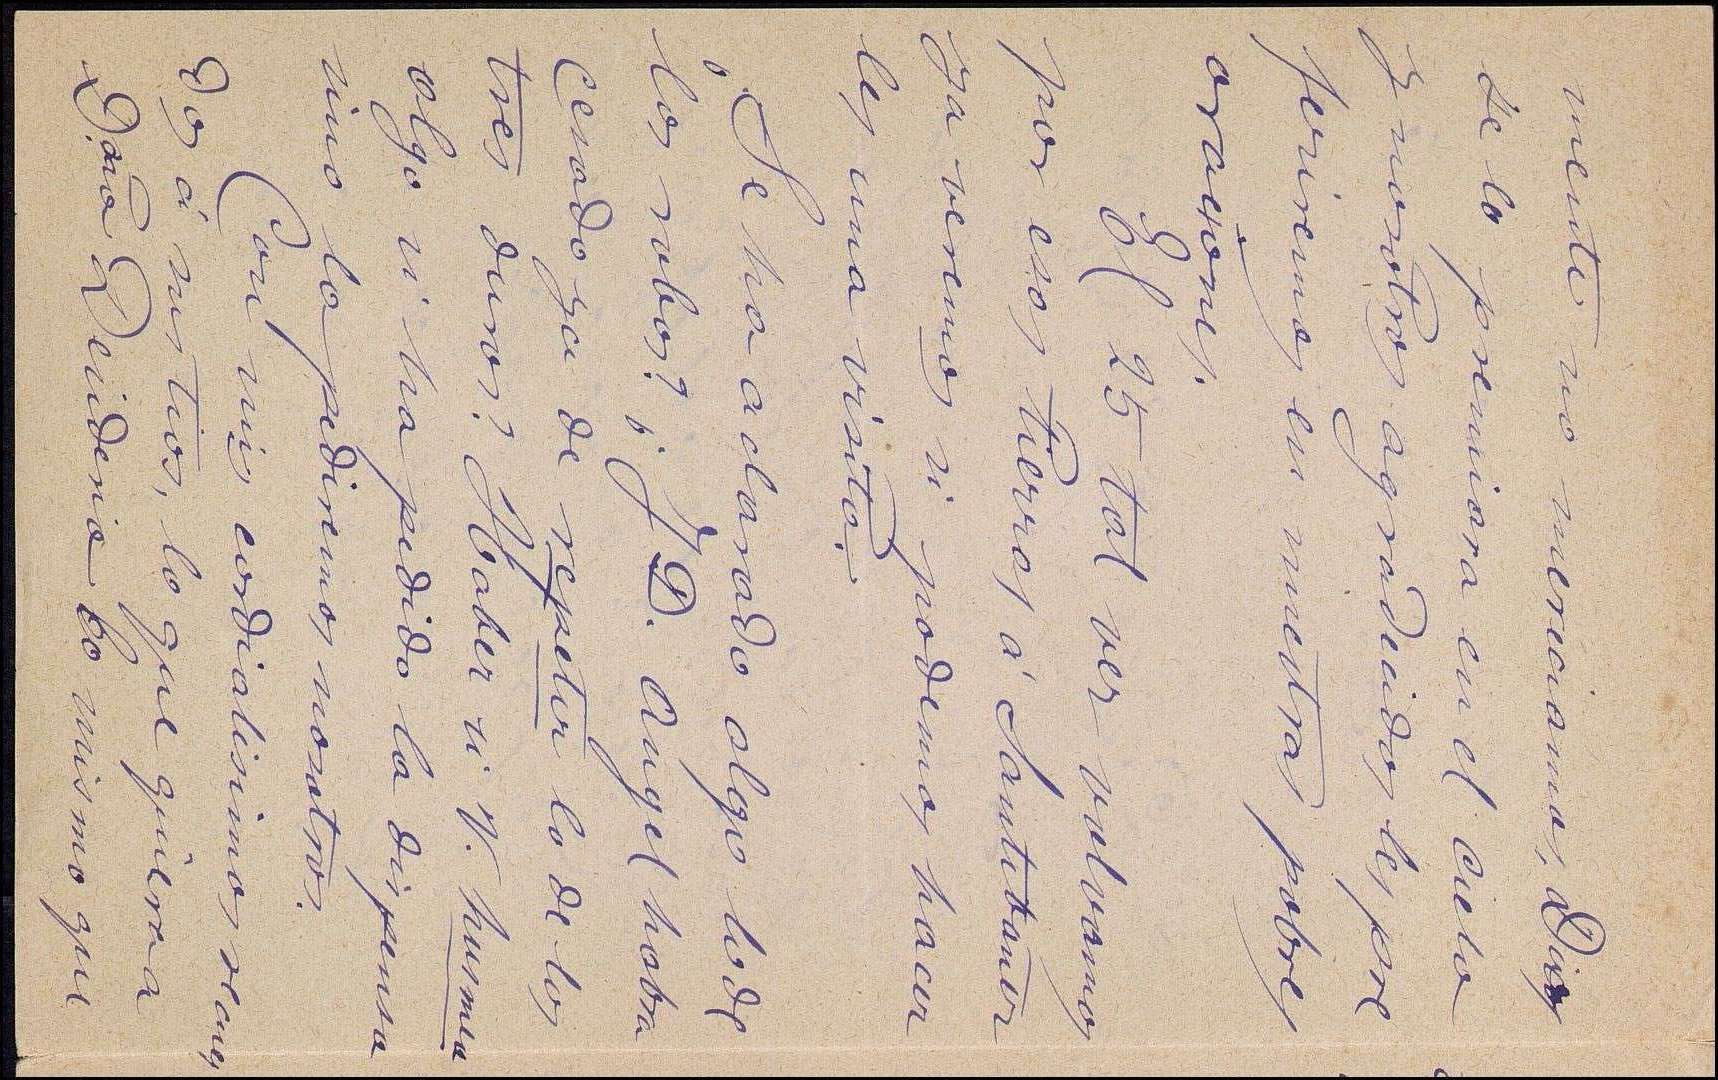 mente no mereciamos, Dios
se lo premiara en el cielo
y nosotros agradecidos les pre
feriremos en nuestras pobres
oraciones.
El 25 tal vez volvamos
por esas tierras á Santibañez
ya veremos si podemos hacer
les una visita.
¿Se ha aclarado algo lo de
los robos? ¿J D. Angel habra
cesado ya de repetir lo de los
tres duros? Haber si V. husmea
algo si ha pedido la dispensa
sino la pediremos nosotros.
Con mis cordialisimos recuer
dos á sus tios, lo que quiera
Doña Deideria lo mismo que